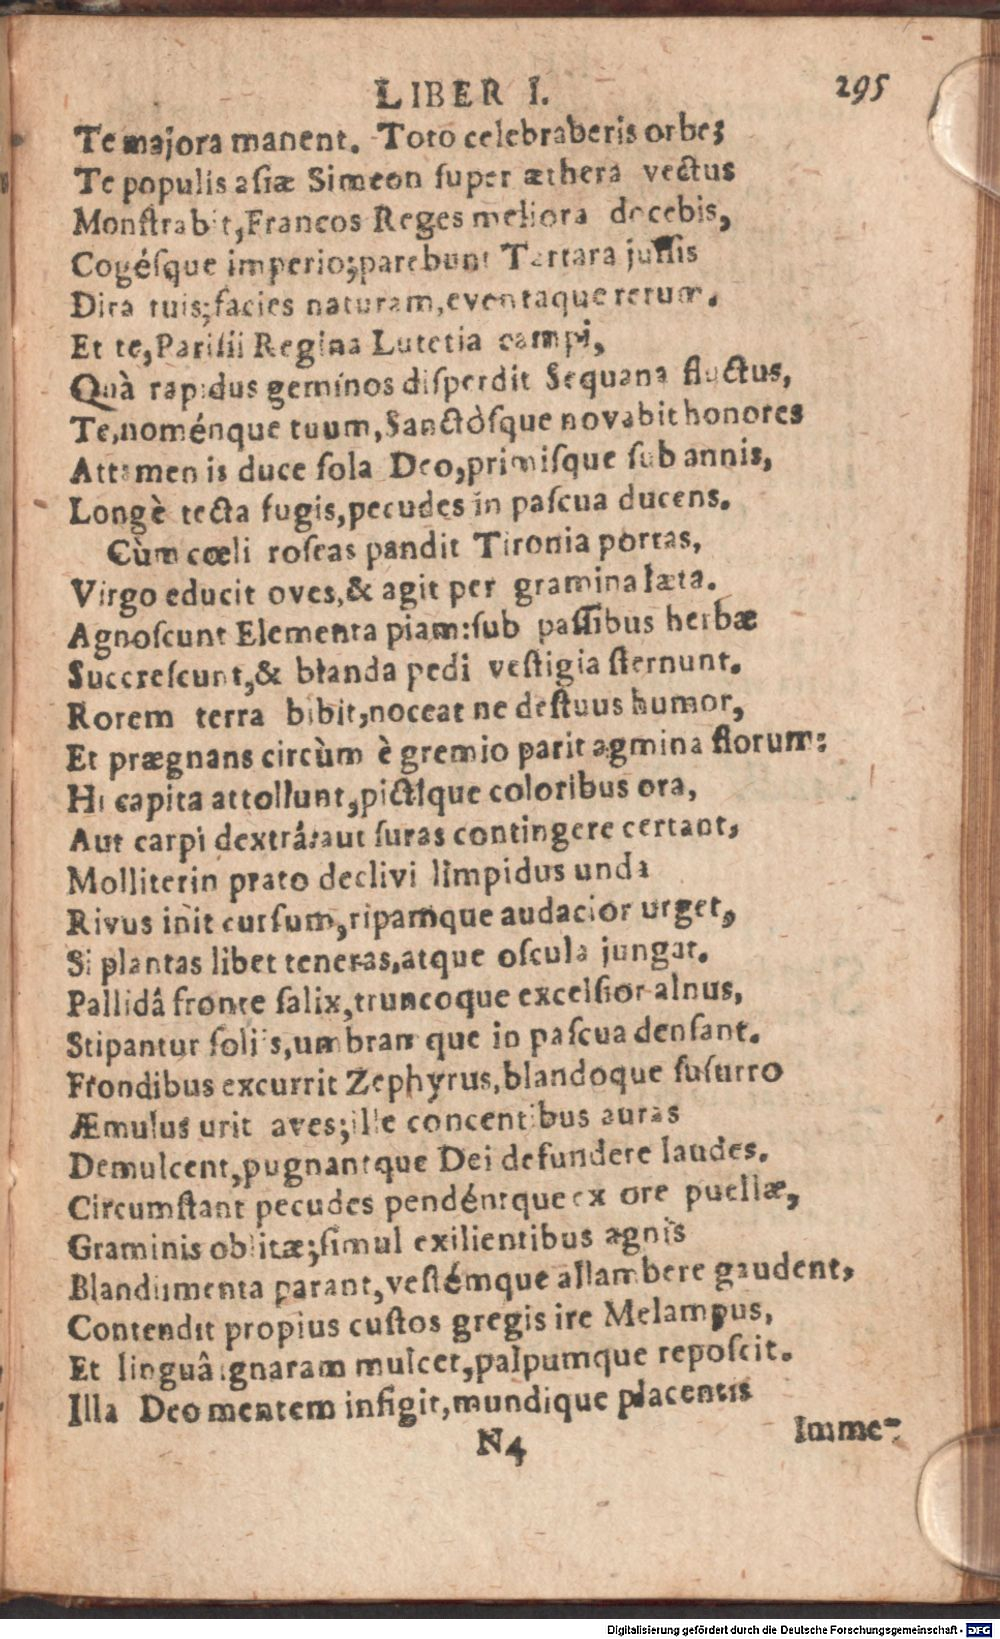 LIBER I. 295
Te majora manent. Toto celebraberis orbe;
Te populis asiæ Simeon super æthera vectus
Monſtrabit, Francos Reges meliora docebis,
Cogéſque imperio; parebunt Tartara juſſis
Dira tuis; facies naturam, eventaque rerum.
Et te, Pariſii Regina Lutetia campi,
Quà rapidus geminos diſperdit Sequana fluctus,
Te, noménque tuum, Sanctòſque novabit honores
Attamen is duce ſola Deo, primiſque ſub annis,
Longè tecta fugis, pecudes in paſcua ducens.
Cùm cœli roſeas pandit Tironia portas,
Virgo educit oves, & agit per gramina læta.
Agnoſcunt Elementa piam: sub paſſibus herbæ
Succreſcunt, & blanda pedi veſtigia ſternunt.
Rorem terra bibit, noceat ne deſtuus humor,
Et prægnans circùm è gremio parit agmina florum:
Hi capita attollunt, pictſque coloribus ora,
Aut carpi dextrâ: aut ſuras contingere certant,
Molliter in prato declivi limpidus unda
Rivus init curſum, ripamque audacior urget,
Si plantas libet teneras, atque oſcula jungat.
Pallidâ fronte ſalix, truncoque excelſior alnus,
Stipantur foliis, umbram que in paſcua denſant.
Frondibus excurrit Zephyrus, blandoque ſuſurro
Æmulus urit aves; ille concentibus auras
Demulcent, pugnantque Dei defundere laudes.
Circumſtant pecudes pendéntque ex ore puellæ,
Graminis oblitæ; ſimul exilientibus agnis
Blandimenta parant, veſtémque allambere gaudent,
Contendit propius cuſtos gregis ire Melampus,
Et linguâ ignaram mulcet, palpumque repoſcit.
Illa Deo mentem infigit, mundique placentis
N4 Imme-
Digitalisierung gefördert durch die Deutsche Forschungsgemeinschaft - DFG